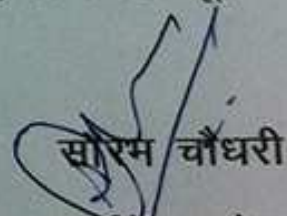 सोरम चौधरी